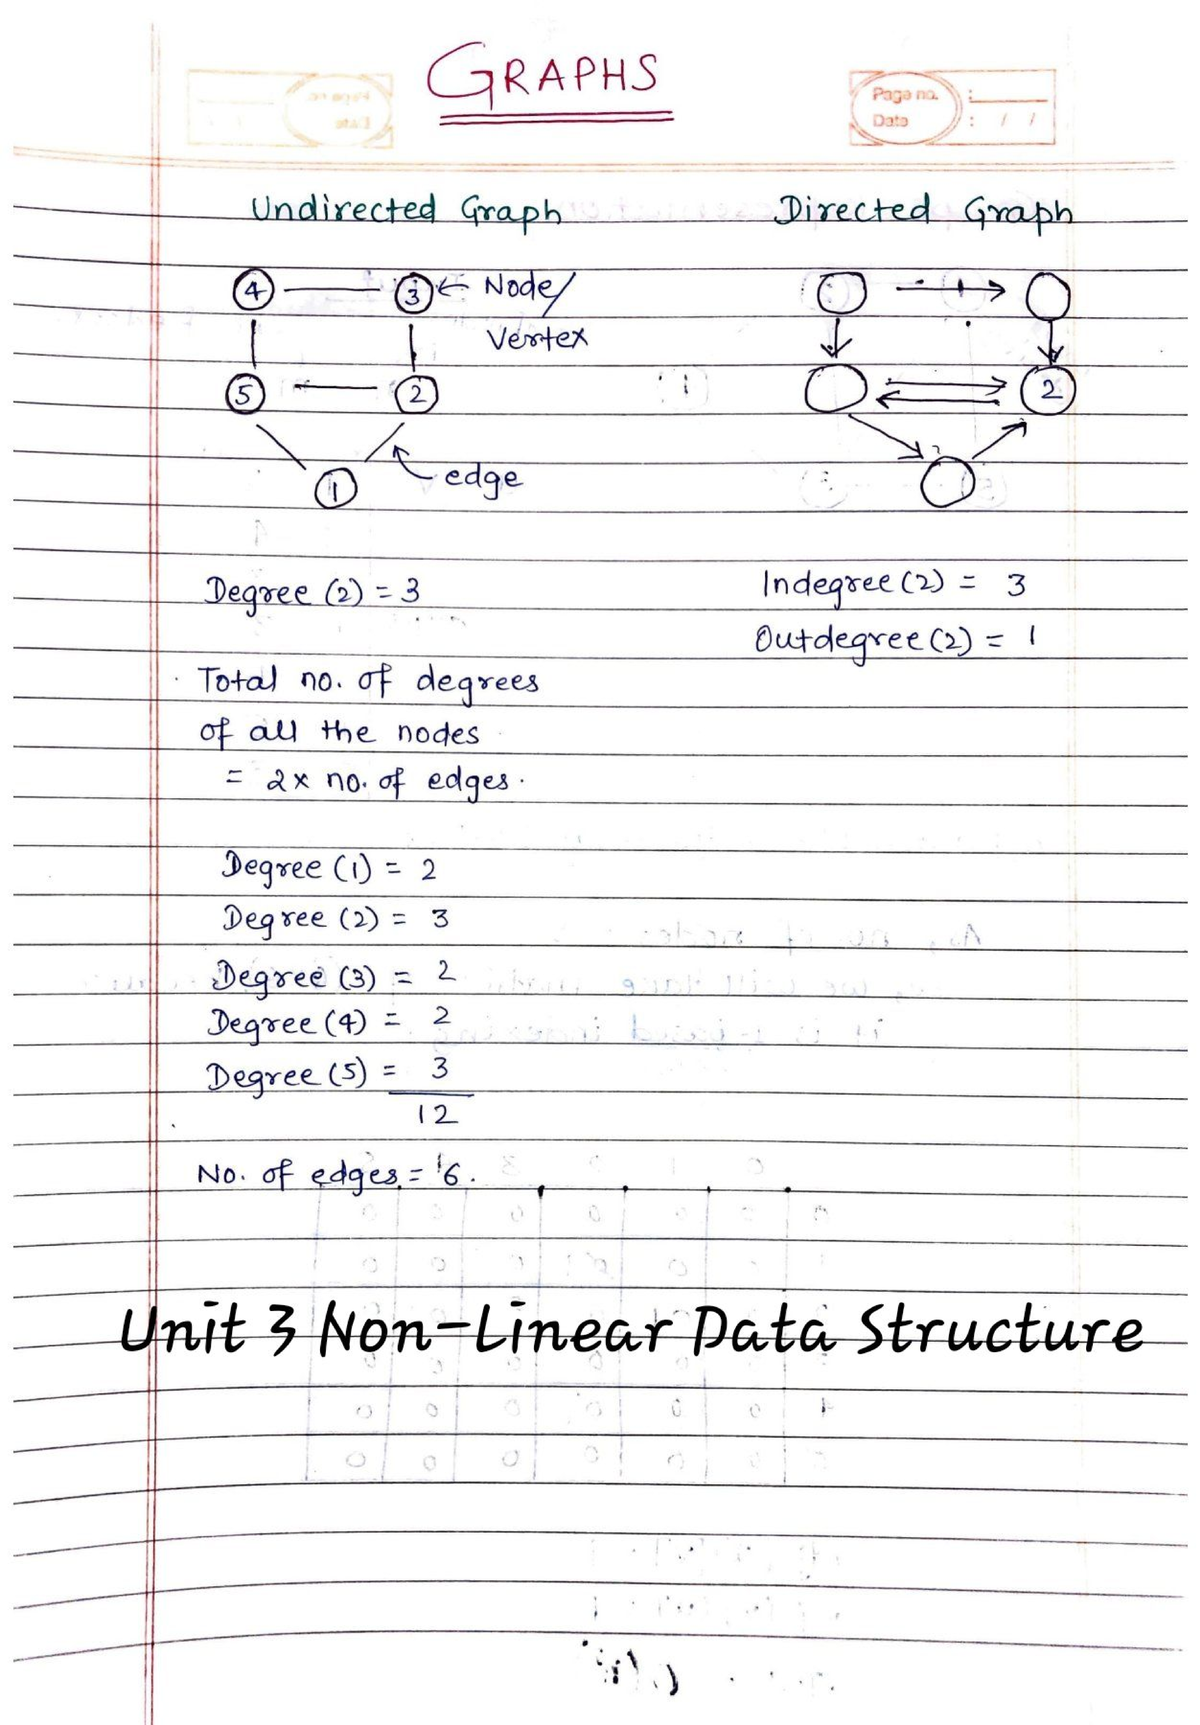 GRAPHS
Page no. :
Date : / /
Undirected Graph
Directed Graph
4 3 ← Node/
Vertex
5 2
1 edge
2
Degree (2) = 3
Indegree (2) = 3
Outdegree (2) = 1
Total no. of degrees
of all the nodes
= 2x no. of edges.
Degree (1) = 2
Degree (2) = 3
Degree (3) = 2
Degree (4) = 2
Degree (5) = 3
12
No. of edges = 6.
Unit 3 Non-Linear Data Structure